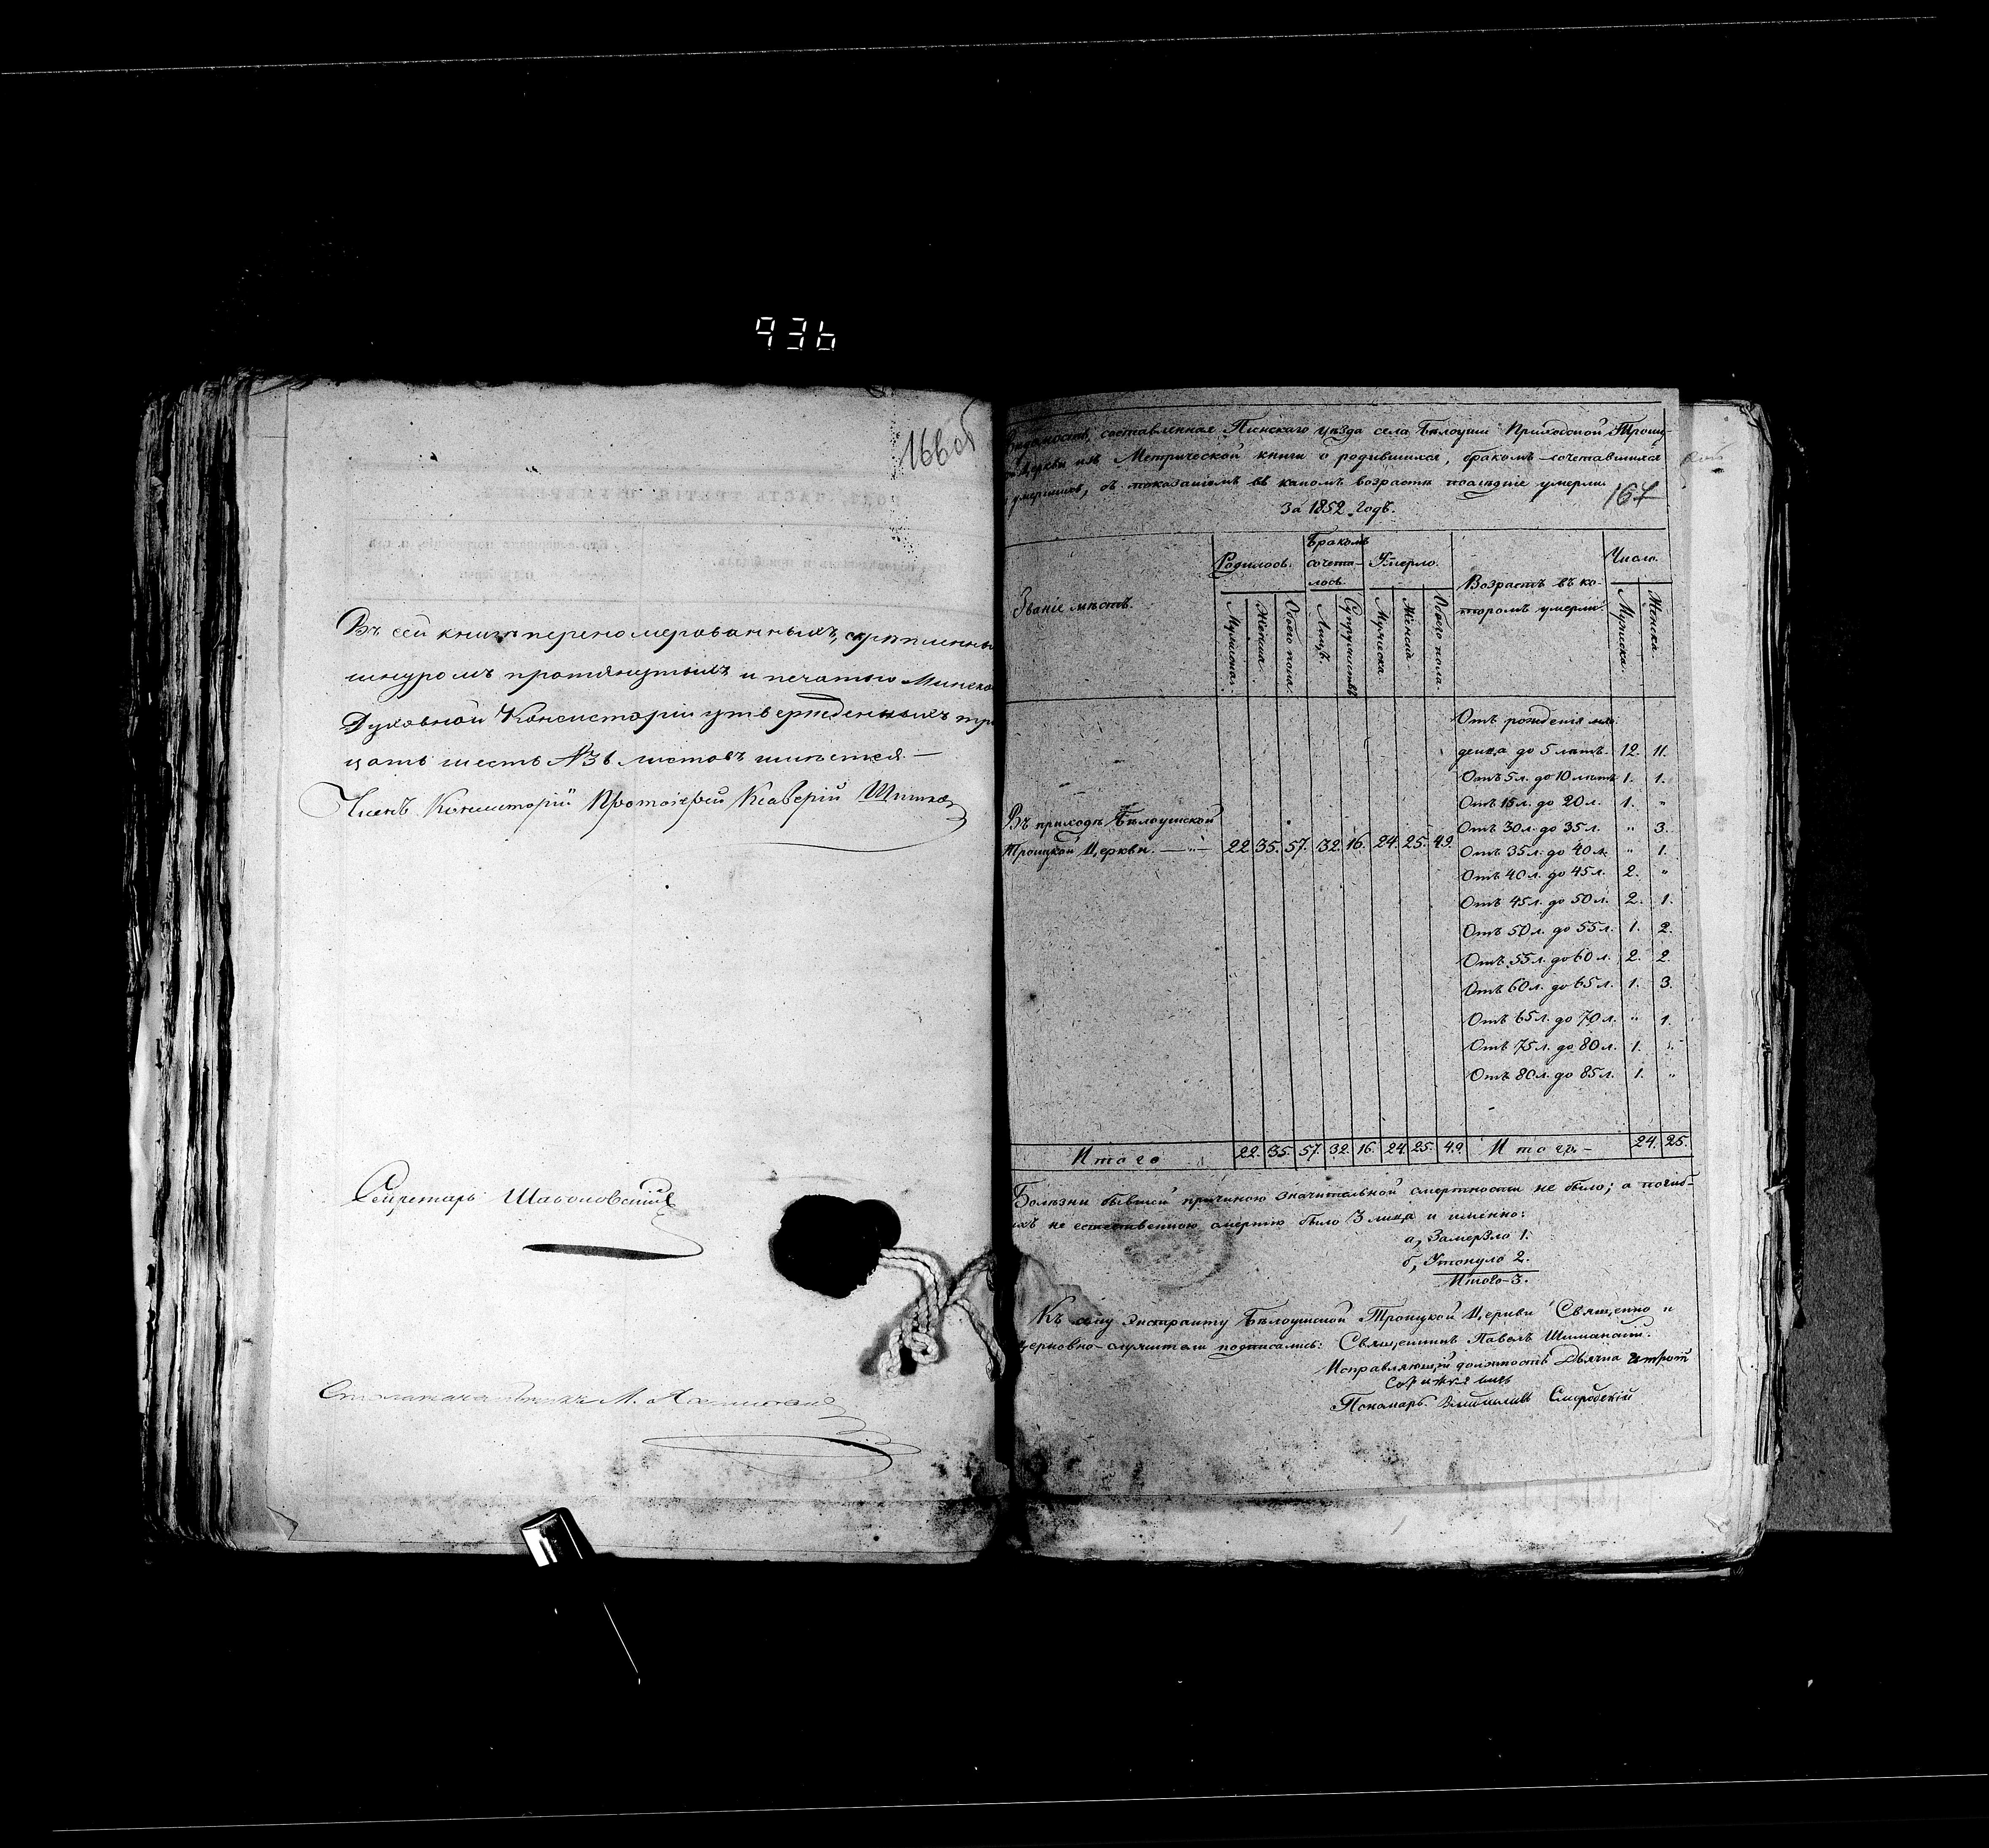 936
166 об
Въ сей книгѣ переномерованныхъ, скрѣпленны
шнуромъ протянутыхъ и печатью Минско
Духовной Консисторіи утвержденныхъ тр
цать шесть №36 листовъ имѣется.—
Членъ Консисторіи Протоіерей Ксаверій
Секретарь
Столоначальникъ М.
составленная Пинскаго уѣзда села Бѣлоуши Приходской Троиц-
церкви изъ Метрической книги о родившихся, бракомъ сочетавшихся
умершихъ, съ показаніемъ въ какомъ возрастѣ послѣдніе умерли
167
За 1852 Годъ.
Званіе мѣстъ.
Родилось.
Бракомъ
сочета-
лось
Умерло.
Возрастъ въ ко-
торомъ умерли.
Число.
Мужеска.
Женска.
Обоего пола.
Лицъ.
Супружествъ
Мужеска
Женска
Обоего пола.
Мужеска.
Женска.
Отъ рожденія мла-
денца до 5 лѣтъ. 12. 11.
Отъ 5 л. до 10 лѣтъ 1. 1.
Отъ 15 л. до 20 л. 1. "
Отъ 30 л. до 35 л. " 3.
Отъ 35 л. до 40 л. " 1.
Отъ 40 л. до 45 л. 2. "
Отъ 45 л. до 50 л. 2. 1.
Отъ 50 л. до 55 л. 1. 2.
Отъ 55 л. до 60 л. 2. 2.
Отъ 60 л. до 65 л. 1. 3.
Отъ 65 л. до 70 л. " 1.
Отъ 75 л. до 80 л. 1. "
Отъ 80 л. до 85 л. 1. "
Въ приходѣ Бѣлоушской
Троицкой Церкви. — " — 22. 35. 57. 32. 16. 24. 25. 49.
Итого 22. 35. 57. 32. 16. 24. 25. 49. Итого— 24. 25.
Болѣзни бывшей причиною значительной смертности не было; а погиб-
ихъ не естественною смертію было 3 лица и именно:
а, Замерзло 1.
б, Утонуло 2.
Итого-3.
Къ сему экстракту Бѣлоушской Троицкой Церкви Священно и
церковно-служители подписались: Священникъ Павелъ
Исправляющій должность Дьячка
Пономарь